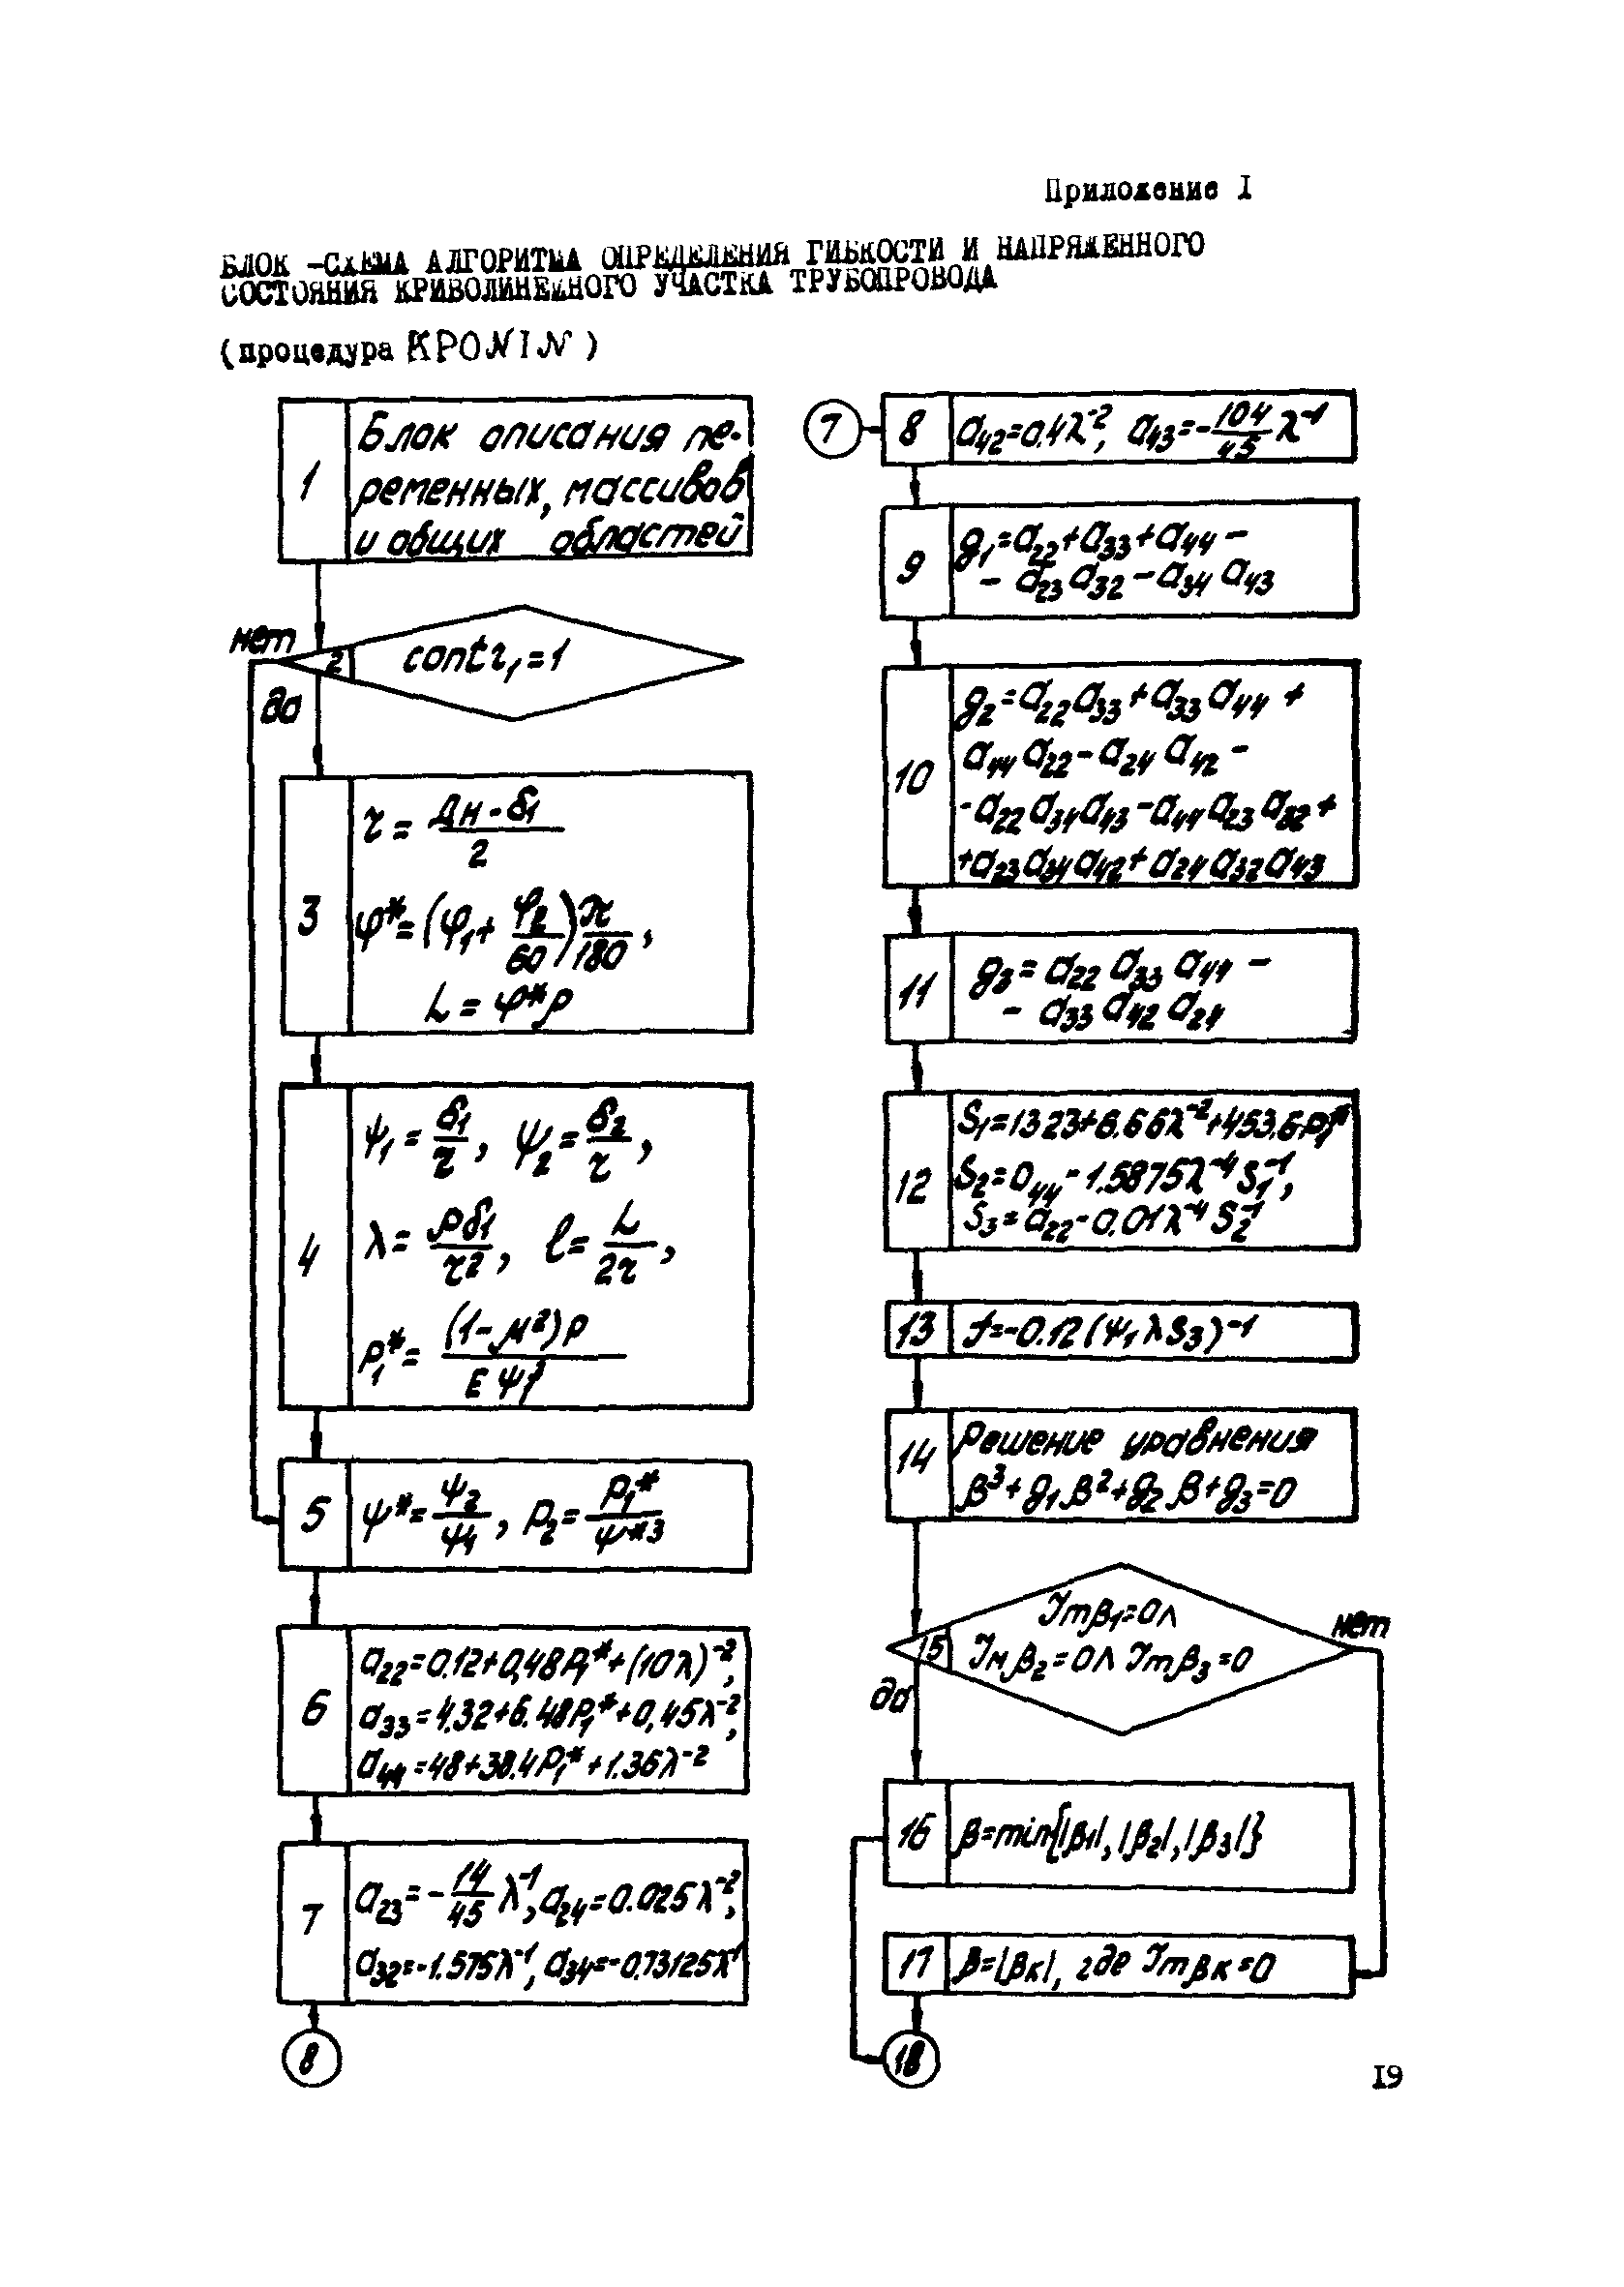 Приложение I
БЛОК -СХЕМА АЛГОРИТМА ОПРЕДЕЛЕНИЯ ГИБКОСТИ И НАПРЯЖЕННОГО
СОСТОЯНИЯ КРИВОЛИНЕЙНОГО УЧАСТКА ТРУБОПРОВОДА
(процедура KPONIN)
1
Блок описания пе-
ременных, массивов
и общих областей
2
contr₁=1
нет
да
3
r = (Дн - δ₁)/2
φ* = (φ₁ + φ₂/60) π/180,
L = φ*ρ
4
ψ₁ = δ₁/r, ψ₂ = δ₂/r,
λ = ρδ₁/r², l = L/2r,
P₁* = (1-μ²)P/Eψ₁³
5
ψ* = ψ₂/ψ₁, P₂ = P₁*/ψ*³
6
a₂₂=0.12+0,48P₁*+(10λ)⁻²,
a₃₃=4.32+6.48P₁*+0,45λ⁻²,
a₄₄=48+38.4P₁*+1.36λ⁻²
7
a₂₃=-14/45 λ⁻¹, a₂₄=0.025λ⁻²,
a₃₂=-1.575λ⁻¹, a₃₄=-0.73125λ⁻¹
8
7
8
a₄₂=0.4λ⁻², a₄₃=-104/45 λ⁻¹
9
g₁=a₂₂+a₃₃+a₄₄ -
- a₂₃a₃₂ - a₃₄a₄₃
10
g₂=a₂₂a₃₃+a₃₃a₄₄ +
a₄₄a₂₂-a₂₄a₄₂ -
-a₂₂a₃₄a₄₃-a₄₄a₂₃a₃₂+
+a₂₃a₃₄a₄₂+a₂₄a₃₂a₄₃
11
g₃= a₂₂a₃₃a₄₄ -
- a₃₃a₄₂a₂₄
12
S₁=1323+6.66λ⁻²+453.6P₁*
S₂=a₄₄-1.5875λ⁻⁴S₁⁻¹,
S₃=a₂₂-0.01λ⁻⁴S₂⁻¹
13
f=-0.12(ψ₁λS₃)⁻¹
14
Решение уравнения
β³+g₁β²+g₂β+g₃=0
15
Jmβ₁=0Λ
Jмβ₂=0Λ Jmβ₃=0
нет
да
16
β=min{|β₁|, |β₂|, |β₃|}
17
β=|βк|, где Jmβк=0
18
19